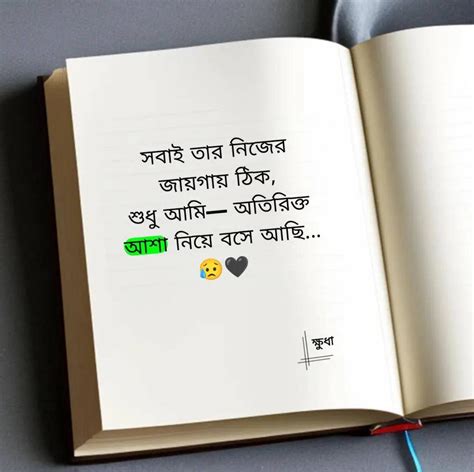 সবাই তার নিজের
জায়গায় ঠিক,
শুধু আমি— অতিরিক্ত
আশা নিয়ে বসে আছি...
😥🖤
ক্ষুধা